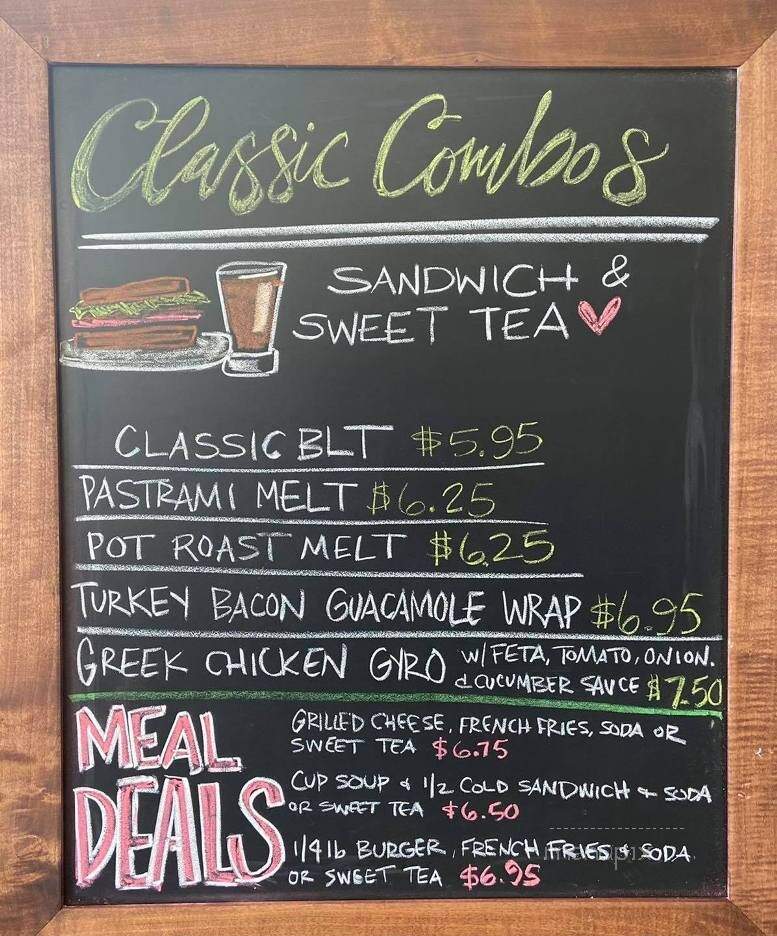 Classic Combos
SANDWICH &
SWEET TEA
CLASSIC BLT $5.95
PASTRAMI MELT $6.25
POT ROAST MELT $6.25
TURKEY BACON GUACAMOLE WRAP $6.95
GREEK CHICKEN GYRO W/ FETA, TOMATO, ONION.
& CUCUMBER SAUCE $7.50
MEAL
DEALS
GRILLED CHEESE, FRENCH FRIES, SODA OR
SWEET TEA $6.75
CUP SOUP & 1/2 COLD SANDWICH & SODA
OR SWEET TEA $6.50
1/4 lb BURGER, FRENCH FRIES & SODA
OR SWEET TEA $6.95